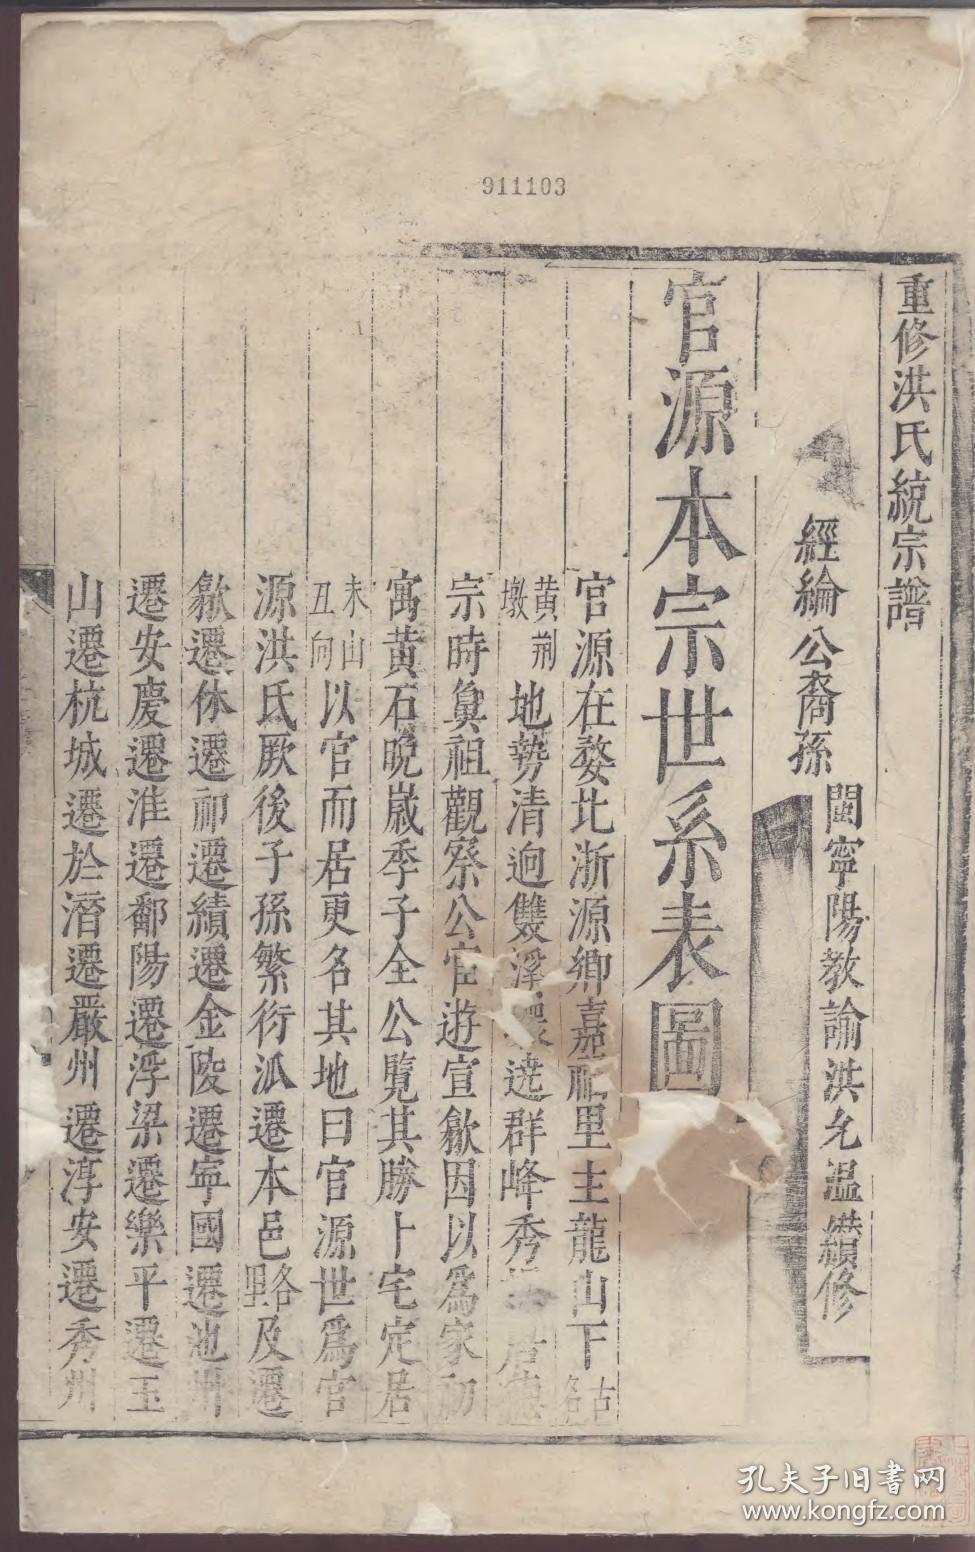 911103
重修洪氏統宗譜
經綸公裔孫
閩寧陽教諭洪允溫纘修
官源本宗世系表圖
官源在婺北浙源鄉嘉福里主龍山下古名
黃荊墩地勢清逈雙溪遶群峰秀居德
宗時奠祖觀察公宦遊宣歙因以爲家初
寓黃石晚歲季子全公覽其勝卜宅定居
未山丑向以官而居更名其地曰官源世爲官
源洪氏厥後子孫繁衍派遷本邑路及遷
歙遷休遷祁遷績遷金陵遷寧國遷池州
遷安慶遷淮遷鄱陽遷浮梁遷樂平遷玉
山遷杭城遷於潛遷嚴州遷淳安遷秀州
孔夫子旧書网
www.kongfz.com